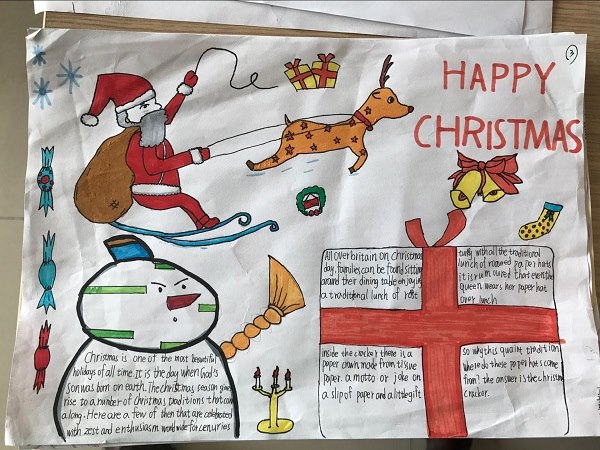 3
HAPPY
CHRISTMAS
All over britain on christmas
day, families can be found sitting
around their dining table enjoying
a traditional lunch of rost
turky with all the traditional
lunch of roawed paper hats
it is rumoured that even the
Queen wears her paper hat
over lunch
inside the cracker there is a
paper crown made from tissue
paper. a motto or joke on
a slip of paper and a little gift
so why this quaint tradition
where do these paper hats come
from? the answer is the christm
cracker.
Christmas is one of the most beautiful
holidays of all time. It is the day when God's
son was born on earth. The christmas season give
rise to a number of Christmas traditions that com
along. Here are a few of then that are celebrated
with zest and enthusiasm worldwide for centuries